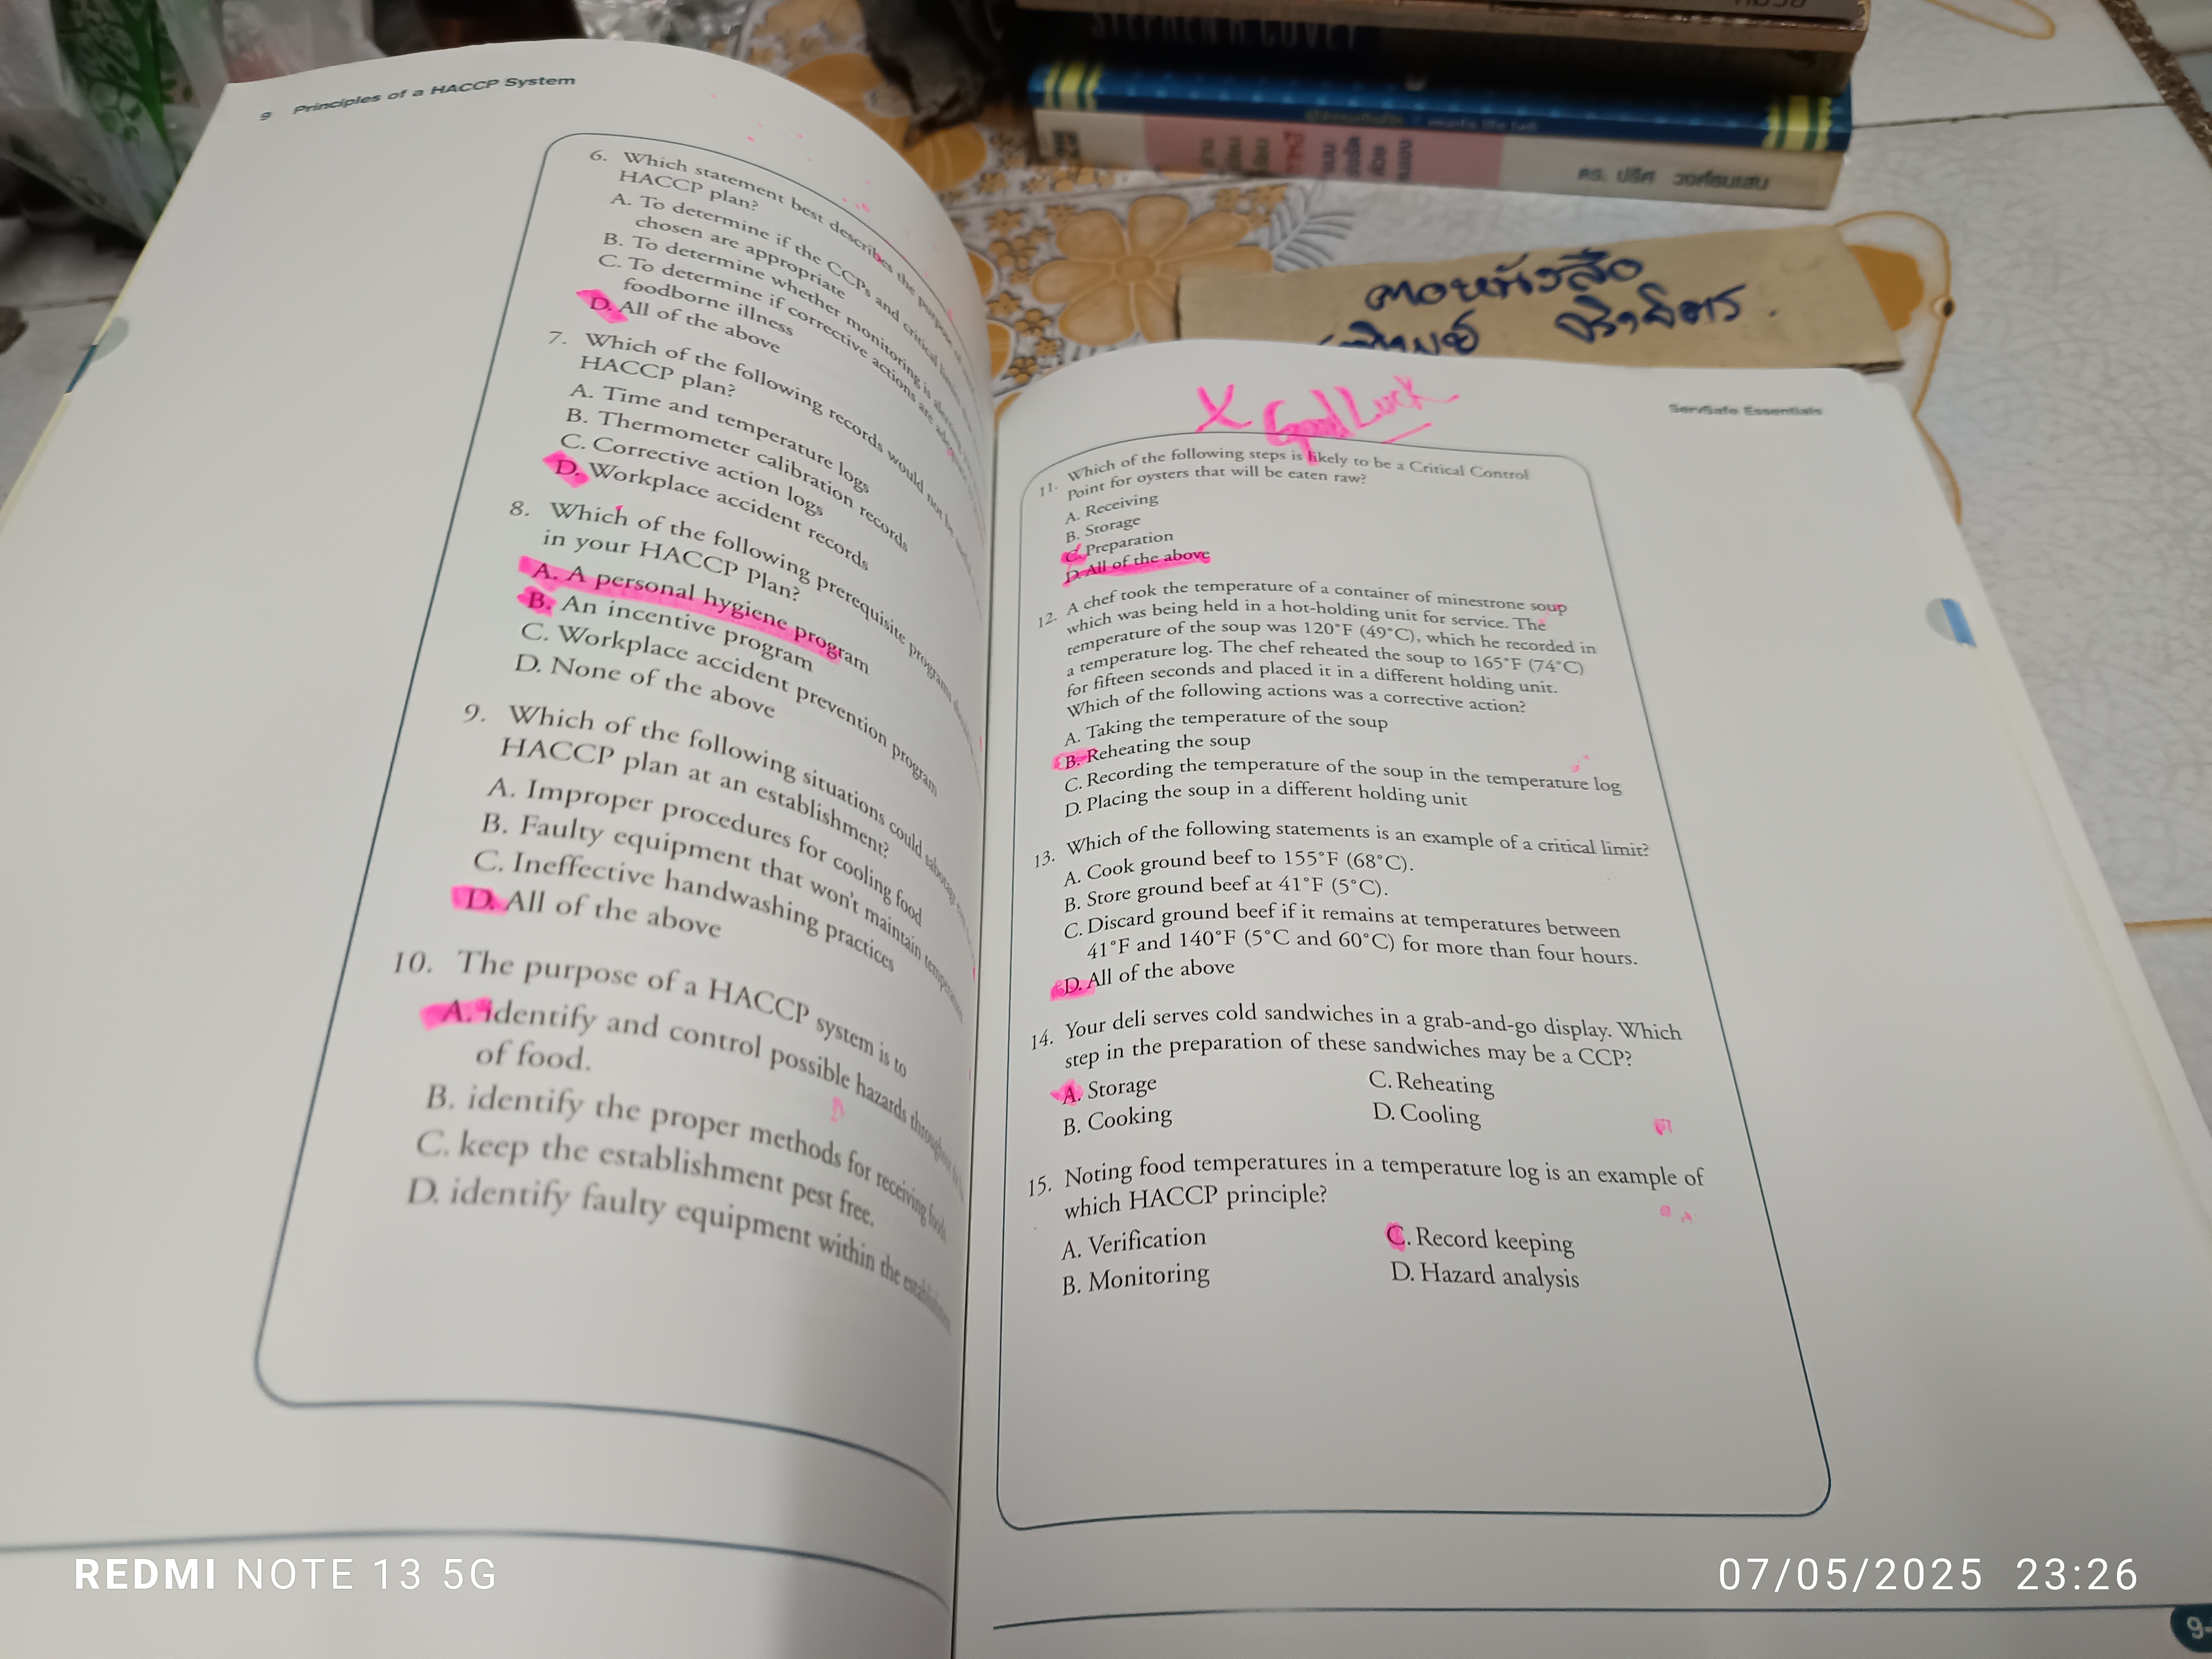 STEPHEN R. COVEY
ดร. ปริศ วงศ์ธนเสน
9 Principles of a HACCP System
6. Which statement best describes the purpose of
HACCP plan?
A. To determine if the CCPs and critical limits
chosen are appropriate
B. To determine whether monitoring is
C. To determine if corrective actions are
foodborne illness
D. All of the above
7. Which of the following records would not be
HACCP plan?
A. Time and temperature logs
B. Thermometer calibration records
C. Corrective action logs
D. Workplace accident records
8. Which of the following prerequisite programs
in your HACCP Plan?
A. A personal hygiene program
B. An incentive program
C. Workplace accident prevention program
D. None of the above
9. Which of the following situations could sabotage
HACCP plan at an establishment?
A. Improper procedures for cooling food
B. Faulty equipment that won't maintain temperatures
C. Ineffective handwashing practices
D. All of the above
10. The purpose of a HACCP system is to
A. identify and control possible hazards throughout the
of food.
B. identify the proper methods for receiving food.
C. keep the establishment pest free.
D. identify faulty equipment within the establishment.
X Good Luck
ServSafe Essentials
11. Which of the following steps is likely to be a Critical Control
Point for oysters that will be eaten raw?
A. Receiving
B. Storage
C. Preparation
D. All of the above
12. A chef took the temperature of a container of minestrone soup
which was being held in a hot-holding unit for service. The
temperature of the soup was 120°F (49°C), which he recorded in
a temperature log. The chef reheated the soup to 165°F (74°C)
for fifteen seconds and placed it in a different holding unit.
Which of the following actions was a corrective action?
A. Taking the temperature of the soup
B. Reheating the soup
C. Recording the temperature of the soup in the temperature log
D. Placing the soup in a different holding unit
13. Which of the following statements is an example of a critical limit?
A. Cook ground beef to 155°F (68°C).
B. Store ground beef at 41°F (5°C).
C. Discard ground beef if it remains at temperatures between
41°F and 140°F (5°C and 60°C) for more than four hours.
D. All of the above
14. Your deli serves cold sandwiches in a grab-and-go display. Which
step in the preparation of these sandwiches may be a CCP?
A. Storage
B. Cooking
C. Reheating
D. Cooling
15. Noting food temperatures in a temperature log is an example of
which HACCP principle?
A. Verification
B. Monitoring
C. Record keeping
D. Hazard analysis
9-
REDMI NOTE 13 5G
07/05/2025 23:26